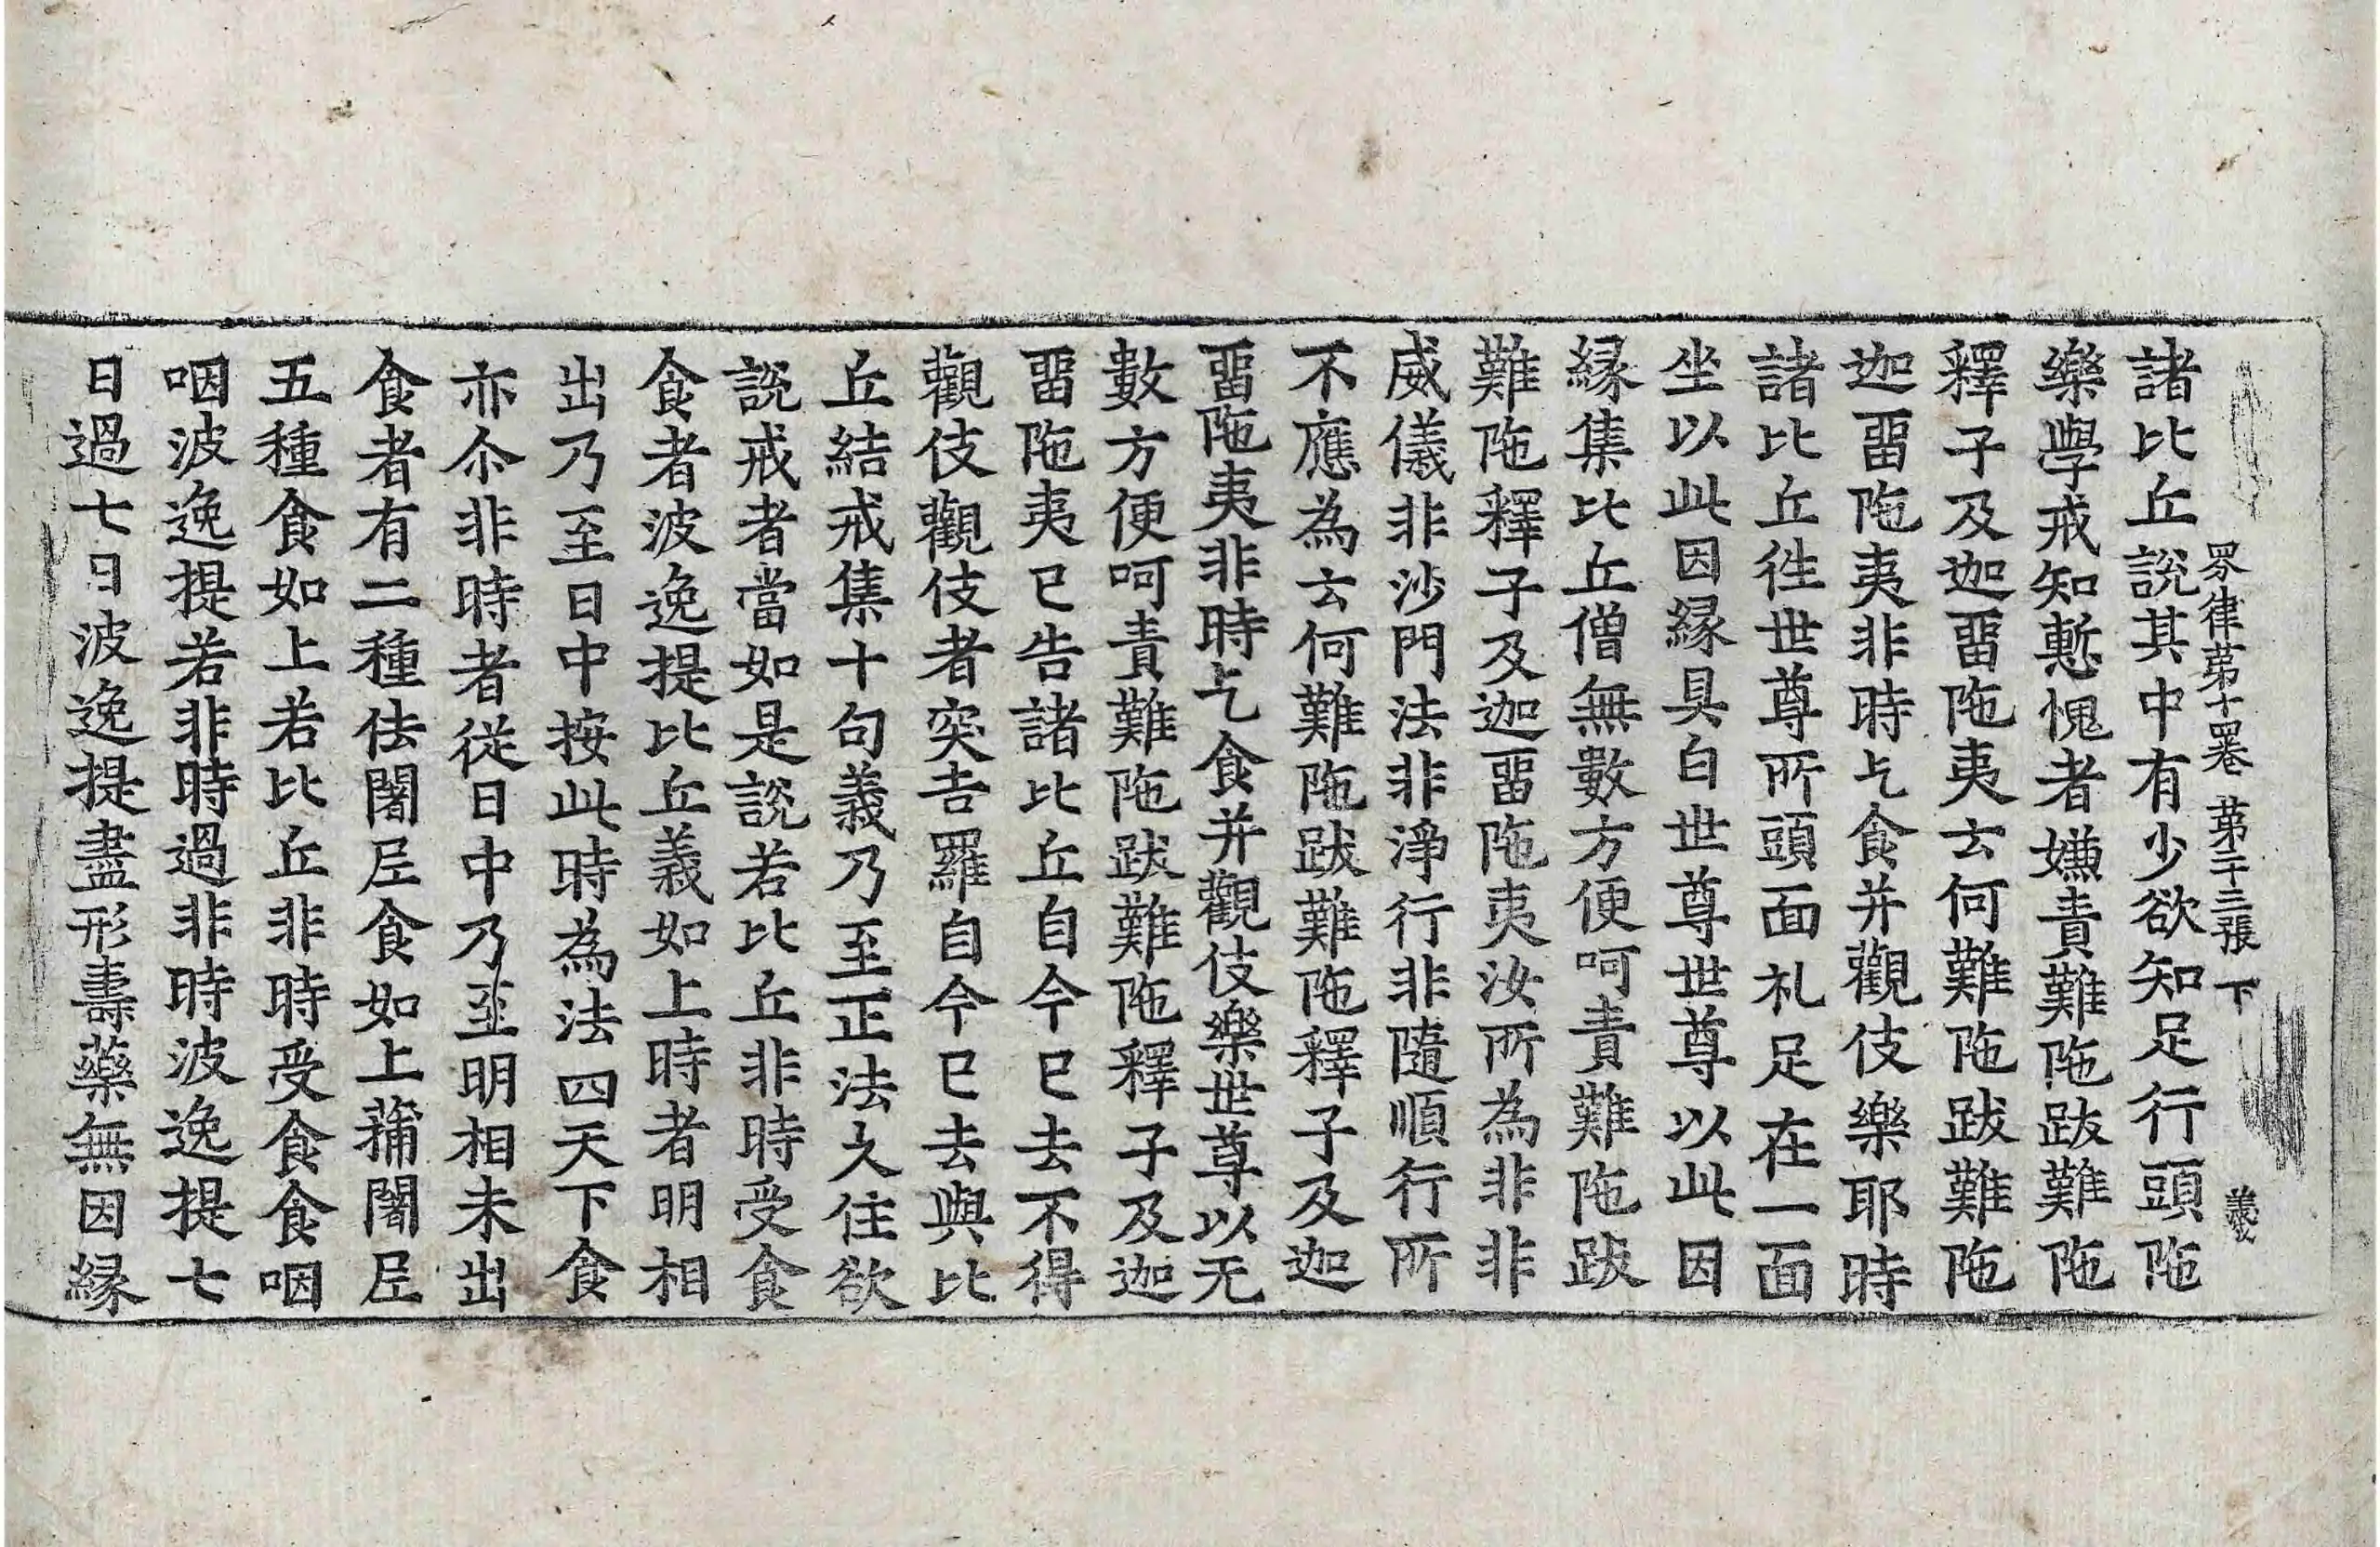 四分律第十四卷 第二十三張 下
諸比丘說其中有少欲知足行頭陁
樂學戒知慙愧者嫌責難陁跋難陁
釋子及迦畱陁夷云何難陁跋難陁
迦畱陁夷非時乞食并觀伎樂耶時
諸比丘往世尊所頭面礼足在一面
坐以此因緣具白世尊世尊以此因
緣集比丘僧無數方便呵責難陁跋
難陁釋子及迦畱陁夷汝所為非非
威儀非沙門法非淨行非隨順行所
不應為云何難陁跋難陁釋子及迦
畱陁夷非時乞食并觀伎樂世尊以无
數方便呵責難陁跋難陁釋子及迦
畱陁夷已告諸比丘自今已去不得
觀伎觀伎者突吉羅自今已去與比
丘結戒集十句義乃至正法久住欲
說戒者當如是說若比丘非時受食
食者波逸提比丘義如上時者明相
出乃至日中按此時為法四天下食
亦尒非時者從日中乃至明相未出
食者有二種佉闍尼食如上蒲闍尼
五種食如上若比丘非時受食食咽
咽波逸提若非時過非時波逸提七
日過七日波逸提盡形壽藥無因緣